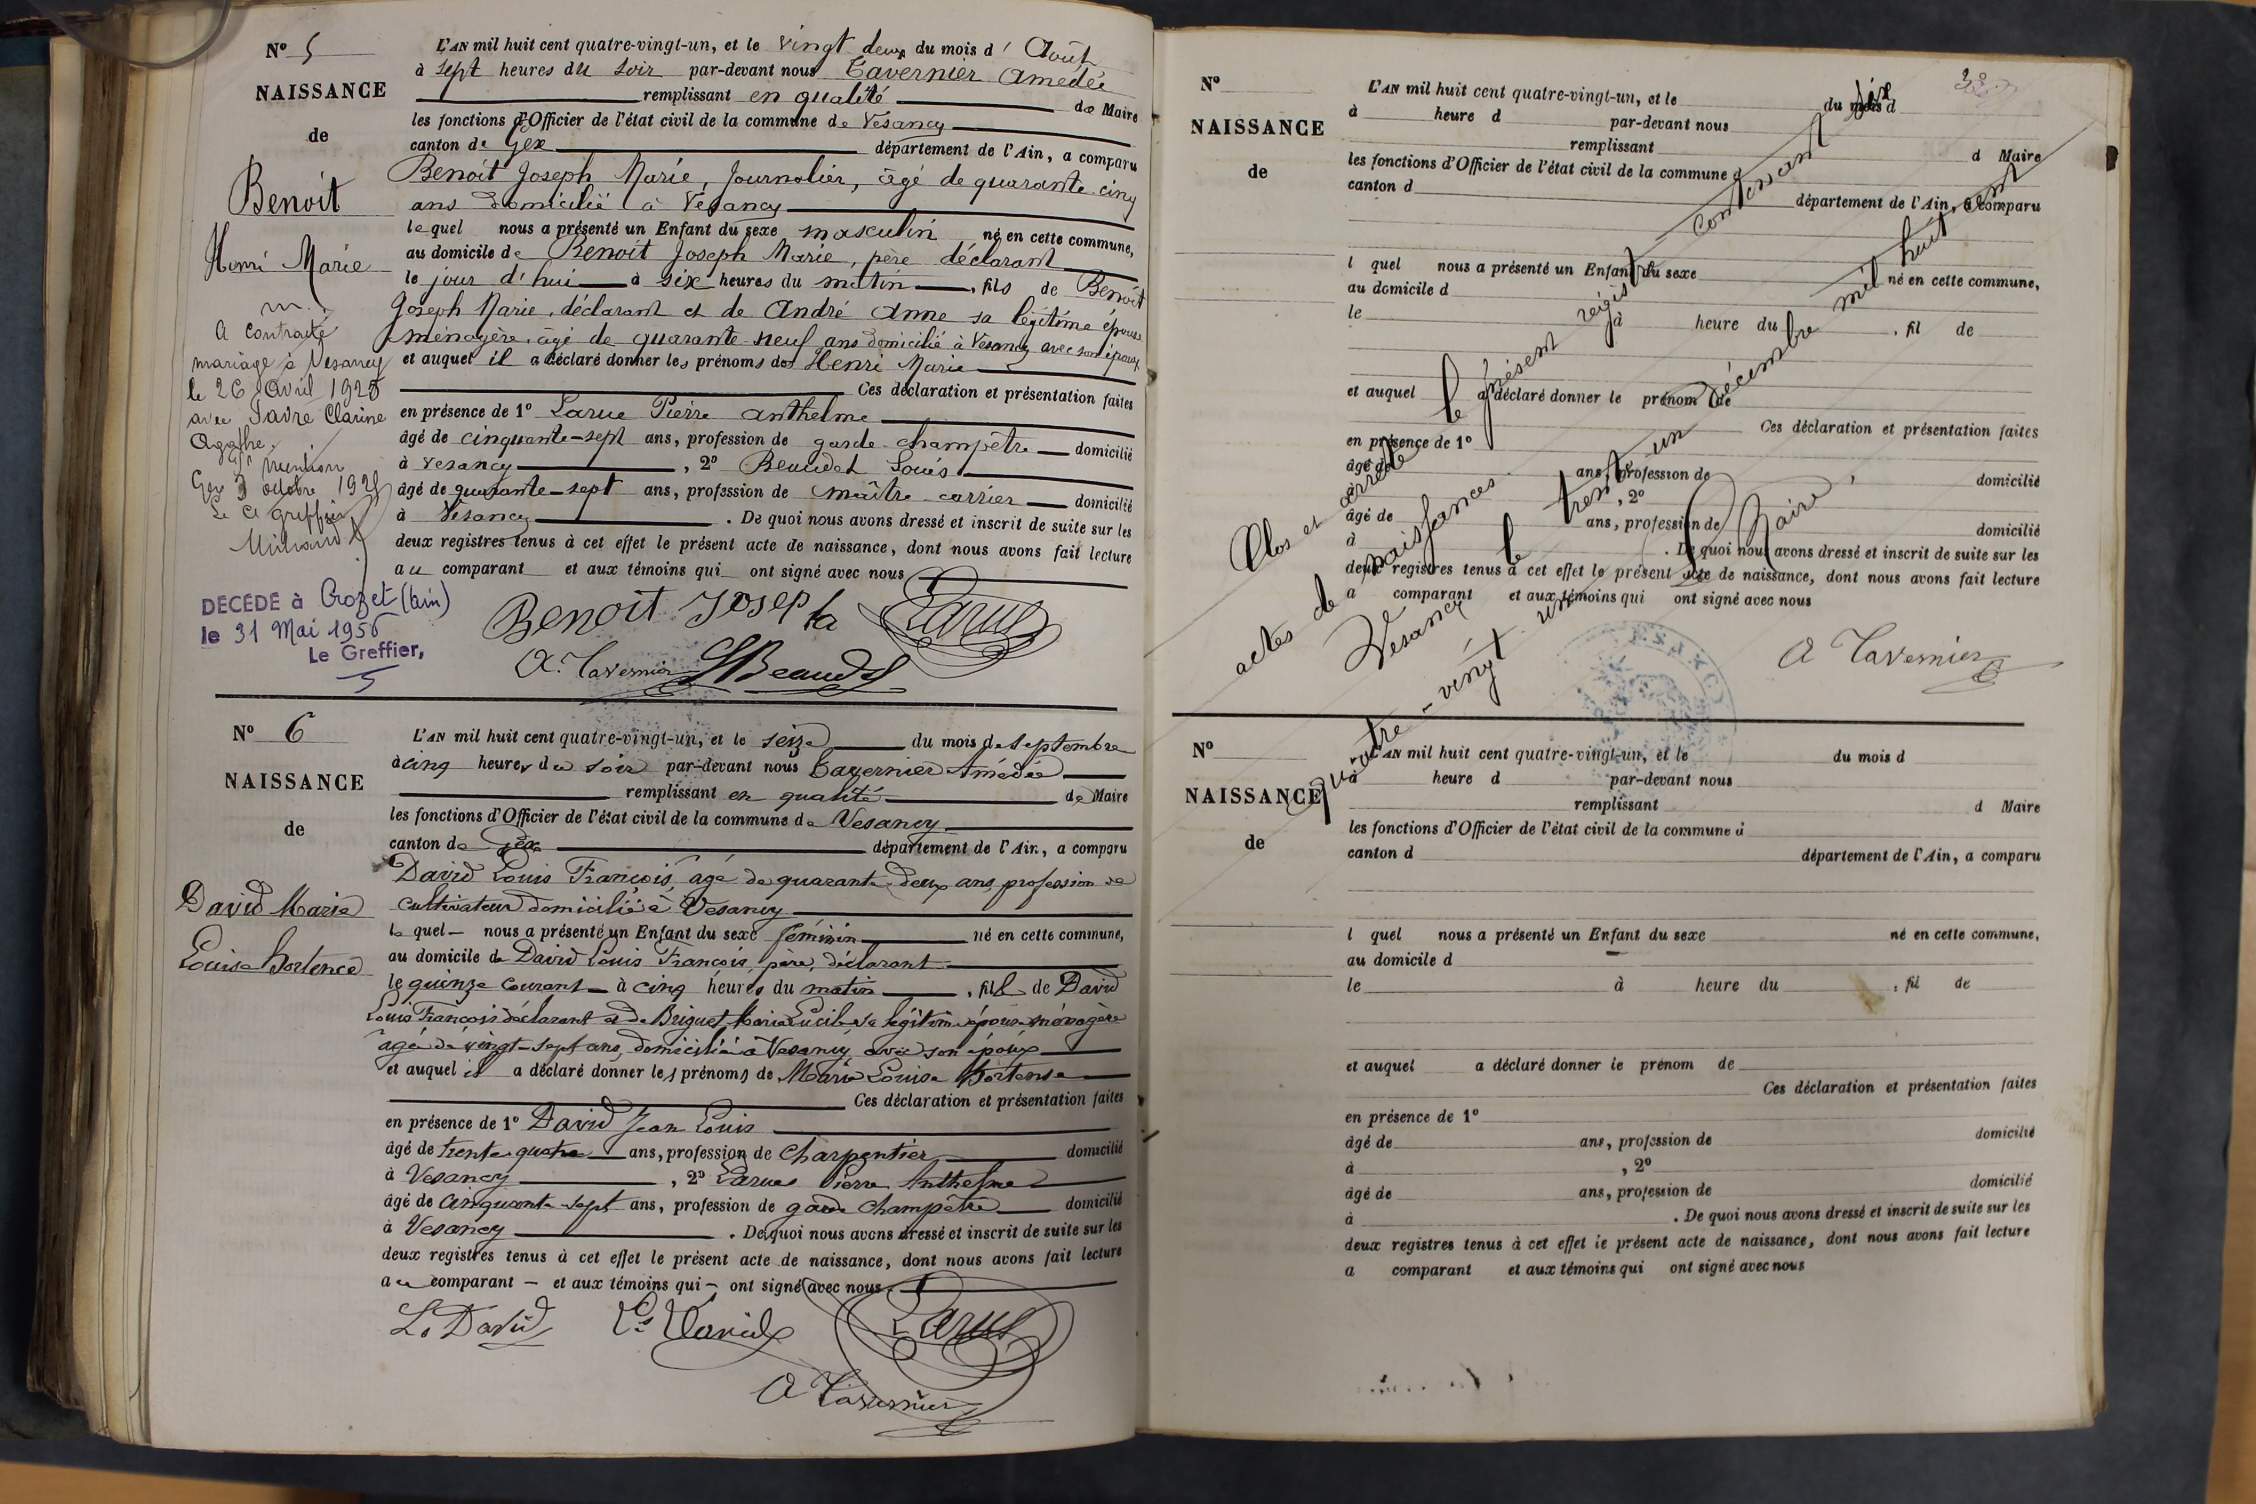 N° 5
NAISSANCE
de
Benoit
Henri Marie
m.
a contracté
mariage à Vesancy
le 26 avril 1925
avec Favre Clarine
Agathe.
mention
Gex 3 octobre 1925
Le Greffier
DÉCÉDÉ à Crozet (Ain)
le 31 Mai 1956
Le Greffier,
L'AN mil huit cent quatre-vingt-un, et le vingt deux du mois d' Août
à sept heures du soir par-devant nous Tavernier Amédée
remplissant en qualité de Maire
les fonctions d'Officier de l'état civil de la commune de Vesancy
canton de Gex département de l'Ain, a comparu
Benoit Joseph Marie, Journalier, âgé de quarante cinq
ans domicilié à Vésancy
lequel nous a présenté un Enfant du sexe masculin né en cette commune,
au domicile de Benoit Joseph Marie, père déclarant
le jour d'hui à six heures du matin, fils de Benoit
Joseph Marie, déclarant et de André Anne sa légitime épouse
ménagère, âgé de quarante-neuf ans domicilié à Vésancy avec son époux
et auquel il a déclaré donner les prénoms de Henri Marie
Ces déclaration et présentation faites
en présence de 1° Larue Pierre Anthelme
âgé de cinquante-sept ans, profession de garde champêtre domicilié
à Vesancy, 2° Beaudet Louis
âgé de quarante-sept ans, profession de maître carrier domicilié
à Vésancy. De quoi nous avons dressé et inscrit de suite sur les
deux registres tenus à cet effet le présent acte de naissance, dont nous avons fait lecture
au comparant et aux témoins qui ont signé avec nous
Benoit Joseph Larue
A. Tavernier L Beaudet
N° 6
NAISSANCE
de
David Marie
Louise Hortence
L'AN mil huit cent quatre-vingt-un, et le seize du mois de septembre
à cinq heures du soir par-devant nous Tavernier Amédée
remplissant en qualité de Maire
les fonctions d'Officier de l'état civil de la commune de Vesancy
canton de Gex département de l'Ain, a comparu
David Louis François, âgé de quarante-deux ans, profession de
cultivateur domicilié à Vesancy
lequel nous a présenté un Enfant du sexe féminin né en cette commune,
au domicile de David Louis François, père, déclarant
le quinze courant à cinq heures du matin, fille de David
Louis François déclarant et de Briguet Marie Lucile sa légitime épouse ménagère
âgée de vingt-sept ans, domiciliée à Vesancy avec son époux
et auquel il a déclaré donner les prénoms de Marie Louise Hortense
Ces déclaration et présentation faites
en présence de 1° David Jean Louis
âgé de trente-quatre ans, profession de charpentier domicilié
à Vesancy, 2° Larue Pierre Anthelme
âgé de cinquante-sept ans, profession de garde champêtre domicilié
à Vesancy. De quoi nous avons dressé et inscrit de suite sur les
deux registres tenus à cet effet le présent acte de naissance, dont nous avons fait lecture
au comparant – et aux témoins qui – ont signé avec nous.
L. David Ls David Larue
A Tavernier
N°
NAISSANCE
de
L'AN mil huit cent quatre-vingt-un, et le du mois d
à heure d par-devant nous
remplissant d Maire
les fonctions d'Officier de l'état civil de la commune d
canton d département de l'Ain, a comparu
l quel nous a présenté un Enfant du sexe né en cette commune,
au domicile d
le à heure du, fil de
et auquel a déclaré donner le prénom de
Ces déclaration et présentation faites
en présence de 1°
âgé de ans, profession de domicilié
à, 2°
âgé de ans, profession de domicilié
à. De quoi nous avons dressé et inscrit de suite sur les
deux registres tenus à cet effet le présent acte de naissance, dont nous avons fait lecture
a comparant et aux témoins qui ont signé avec nous
Clos et arrêté le présent registre contenant six
actes de naissances
Vesancy le trente un décembre mil huit cent
quatre-vingt un
Maire
A Tavernier
N°
NAISSANCE
de
L'AN mil huit cent quatre-vingt-un, et le du mois d
à heure d par-devant nous
remplissant d Maire
les fonctions d'Officier de l'état civil de la commune d
canton d département de l'Ain, a comparu
l quel nous a présenté un Enfant du sexe né en cette commune,
au domicile d
le à heure du, fil de
et auquel a déclaré donner le prénom de
Ces déclaration et présentation faites
en présence de 1°
âgé de ans, profession de domicilié
à, 2°
âgé de ans, profession de domicilié
à. De quoi nous avons dressé et inscrit de suite sur les
deux registres tenus à cet effet le présent acte de naissance, dont nous avons fait lecture
a comparant et aux témoins qui ont signé avec nous